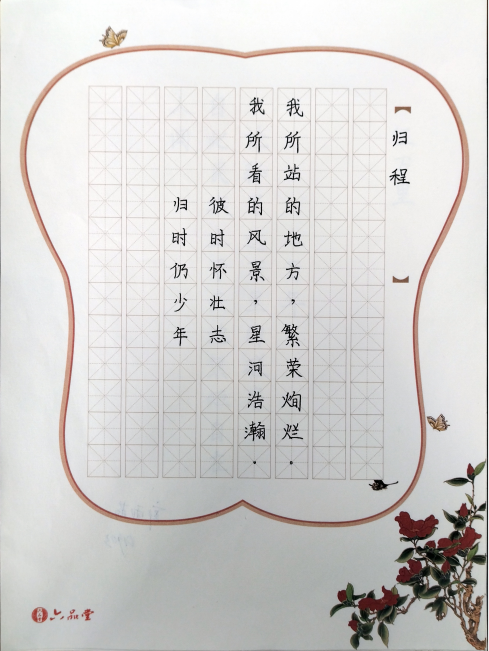 【归程】
我所站的地方，繁荣炯烂．
我所看的风景，星河浩瀚．
彼时怀壮志
归时仍少年
六品堂